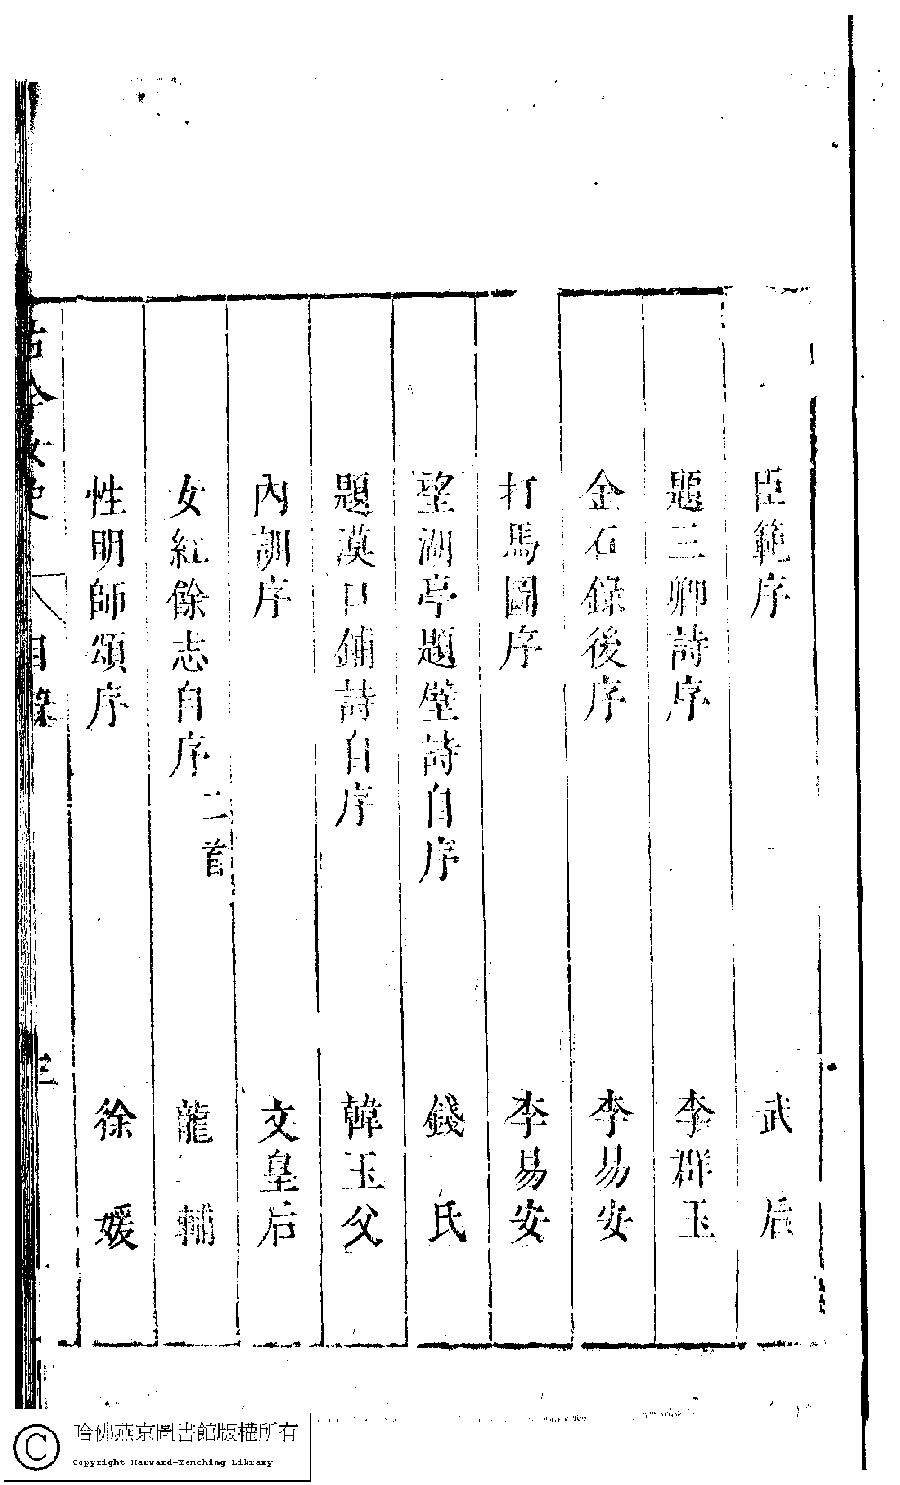 臣範序 武后
題三卿詩序 李群玉
金石錄後序 李易安
打馬圖序 李易安
望湖亭題壁詩自序 錢氏
題漠口鋪詩自序 韓玉父
內訓序 文皇后
女紅餘志自序 二首 龍輔
性明師頌序 徐媛
古今女史 目錄
哈佛燕京圖書館版權所有
Copyright Harvard-Yenching Library